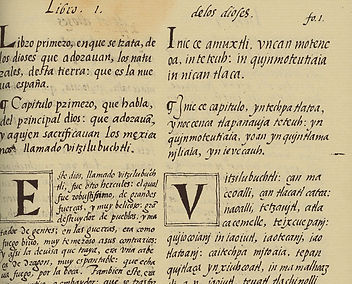 Libro. 1.
de los dioses.
fo. 1.
Libro primero, en que se trata, de
los dioses que adorauan, los natu
rales, desta tierra: que es la nue
ua españa.
¶ Capitulo primero, que habla,
del principal dios: que adorauã,
y a qujen sacrificauan los mexica
nos llamado vitzilubuchtli.
Este dios, llamado vitzilubuch
tli, fue otro hercules: el qual
fue robustissimo, de grandes
fuerças, y muy belicoso: gran
destruydor de pueblos, y ma
tador de gentes: en las guerras, era como
fuego biuo, muy temeroso a sus contrarios:
y assi la deuisa que traya, era vna cabe
ça de dragon, muy espantable: que echa
ua fuego, por la boca. Tambien este era
Injc ce amuxtli, vncan moteneo
oa, in teteuh: in qujnmoteutiaia
in njcan tlaca.
¶ Injc ce capitulo, yntechpa tlatoa,
yn oc cenca tlapanaujia teteuh: yn
qujnmoteutiaia, yoan yn qujntlama
njliaia, yn ie vecauh.
Vitzilubuchtli: çan ma
ceoalli, çan tlacatl catca:
naoalli, tetzaujtl, atla
cacemelle, teixcuepanj:
qujiocoianj in iaoiutl, iaotecanj, iao
tlatoanj: ca itechpa mjtoaia, tepan
qujtlaça yn xiuhcoatl, in mamalhoaz